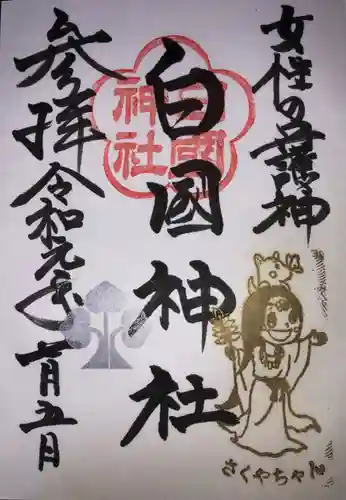 女性の守護神
白國神社
白國神社
参拝
令和元年
二月五日
さくやちゃん